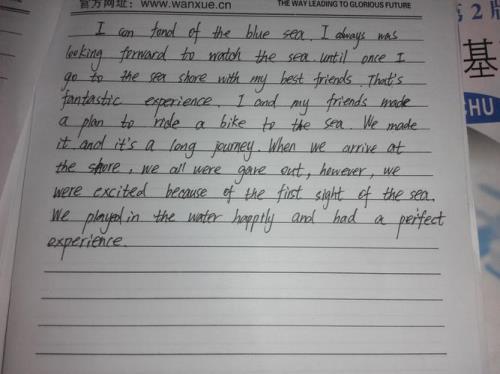 官方网址：www.wanxue.cn THE WAY LEADING TO GLORIOUS FUTURE
I can fond of the blue sea. I always was
looking forward to watch the sea. until once I
go to the sea shore with my best friends. That's
fantastic experience. I and my friends made
a plan to ride a bike to the sea. We made
it. and it's a long journey. When we arrive at
the shore, we all were gave out, however, we
were excited because of the first sight of the sea.
We played in the water happily and had a perfect
experience.
第2版
基
CHU